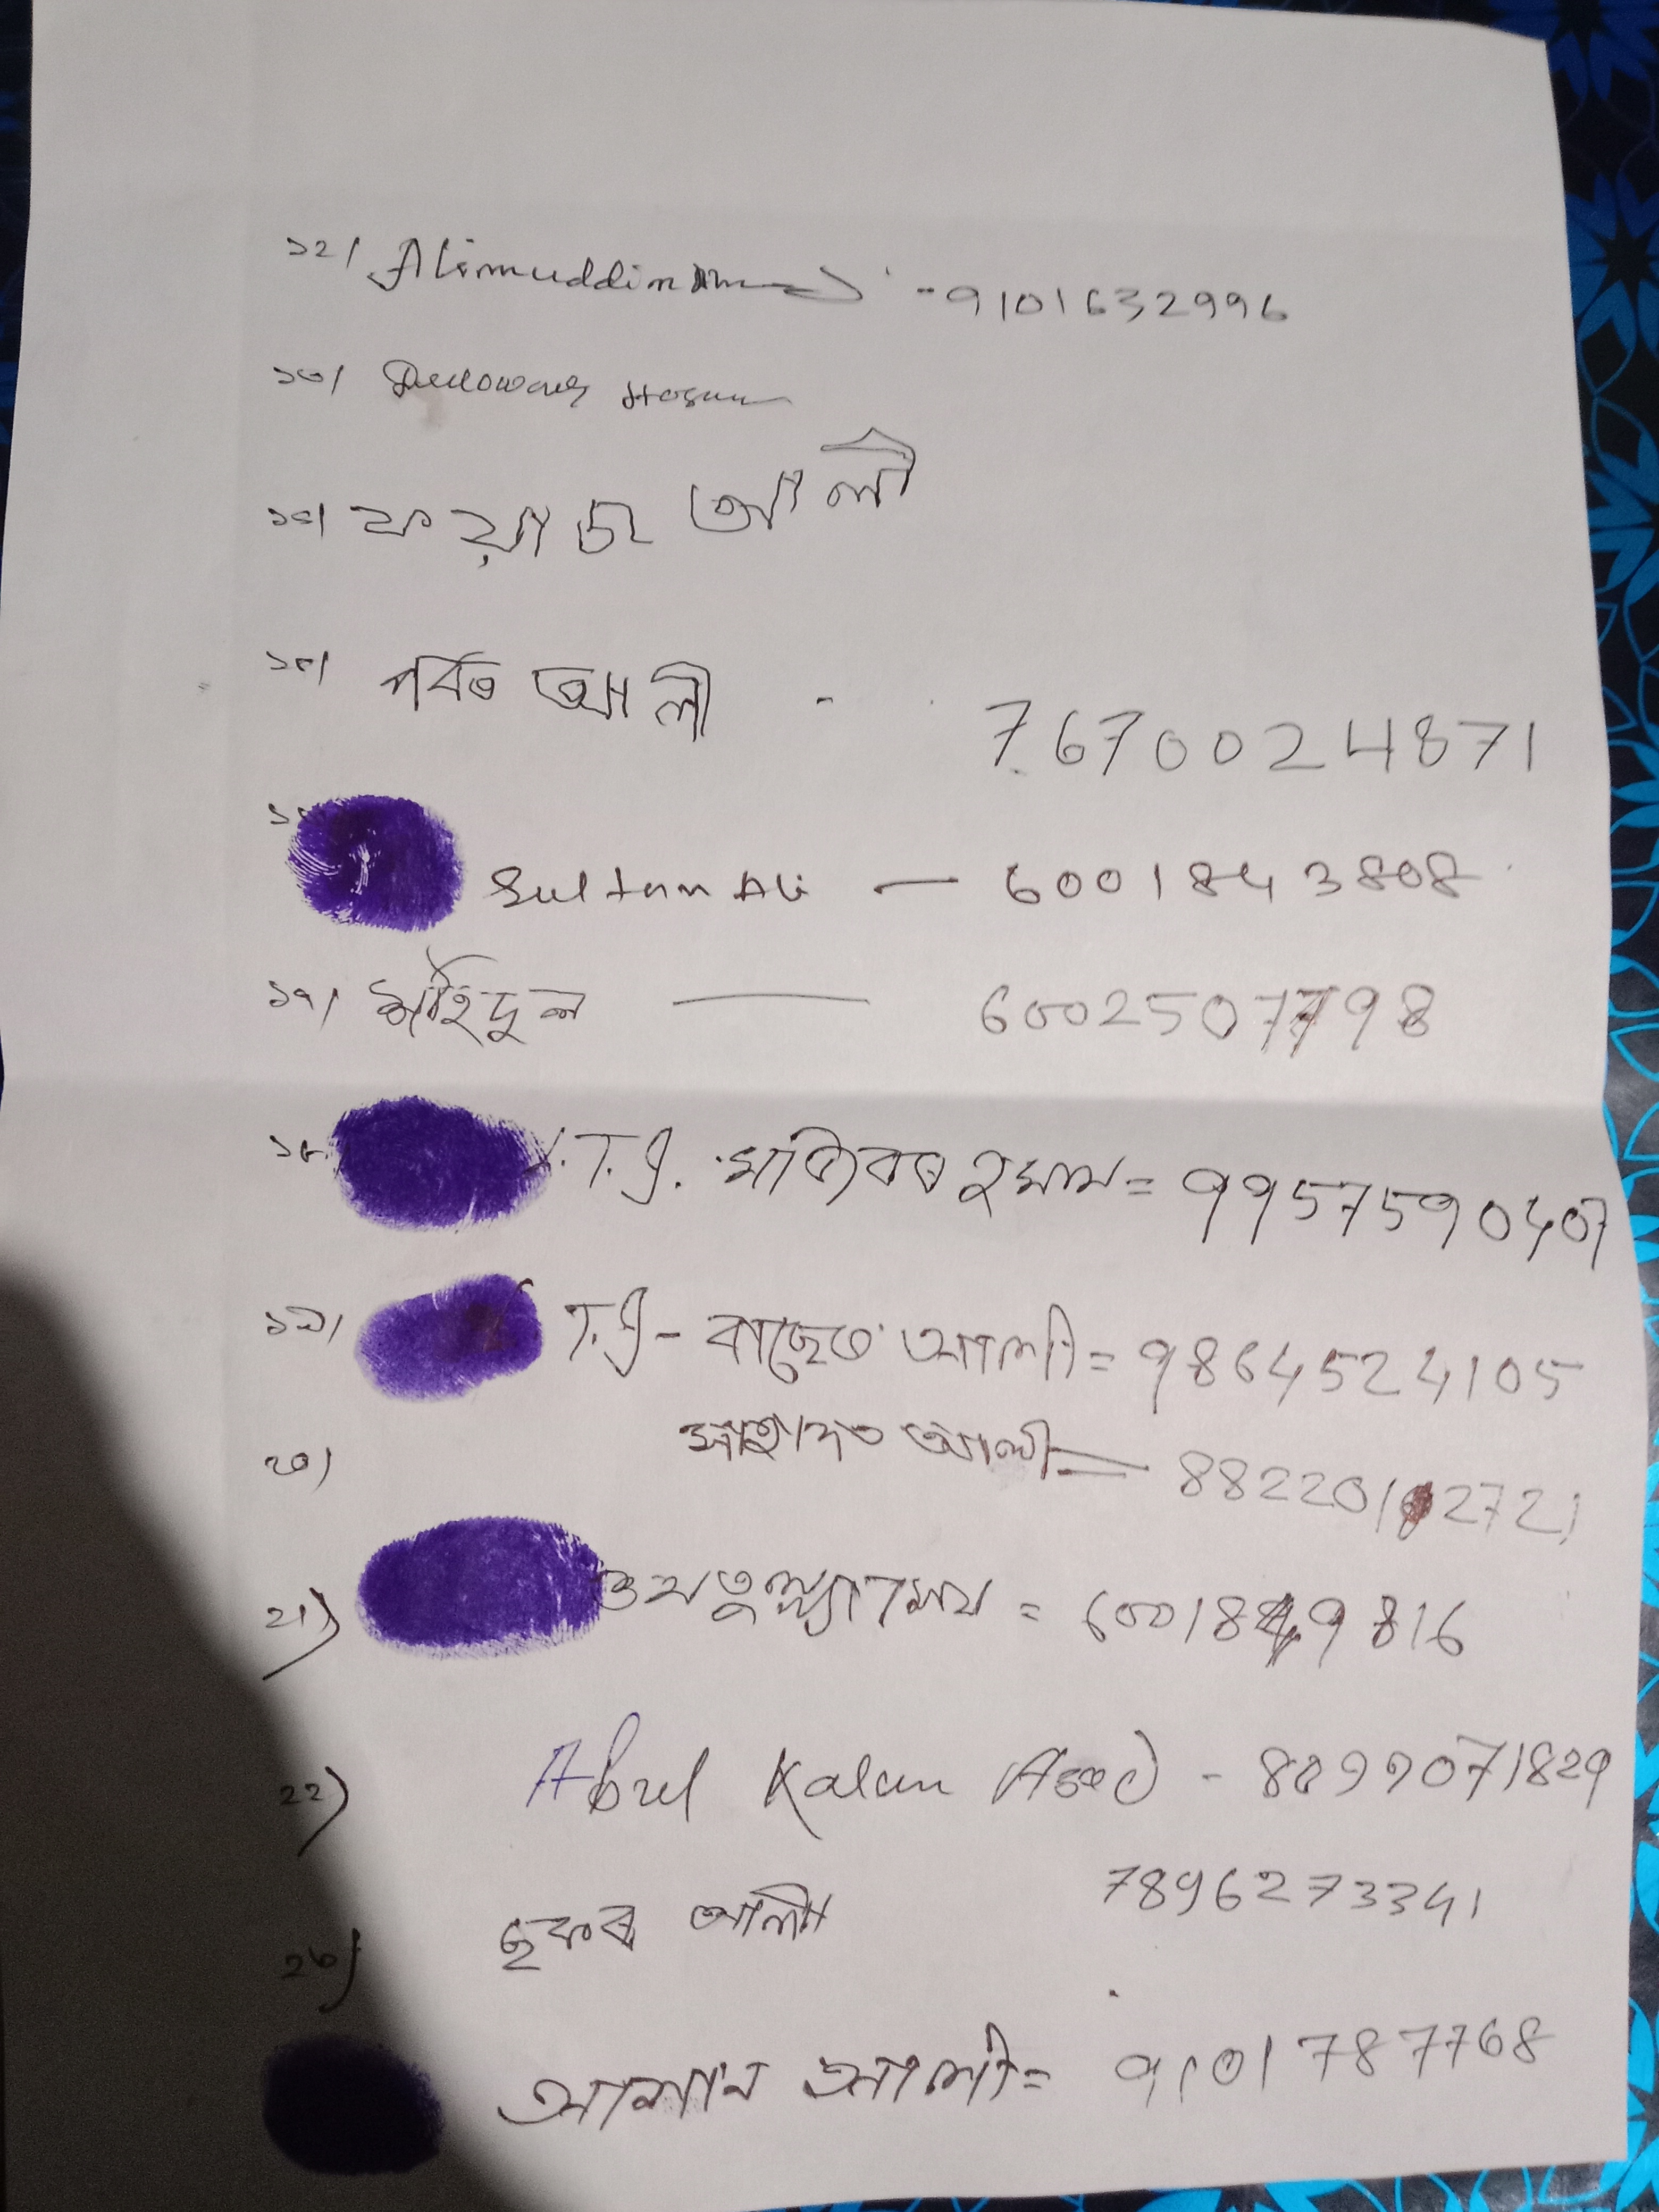 ১২। Alimuddin Ahmed - 9101632996
১৩। Delowar Hosen
১৪। ফয়াজ আলী
১৫। পৰ্বত আলী - 7670024871
Sultan Ali — 6001843808
১৭। মহিদুল — 6002507798
১৮. T.I. = 9957590407
১৯। T.I - বাছেত আলী = 9864524105
২০) সাহাদত আলী = 8822012721
21) = 6001849816
22) Abul Kalam Asad - 8099071829
ছফৰ আলী 7896273341
২৩)
আলী = 9101787768